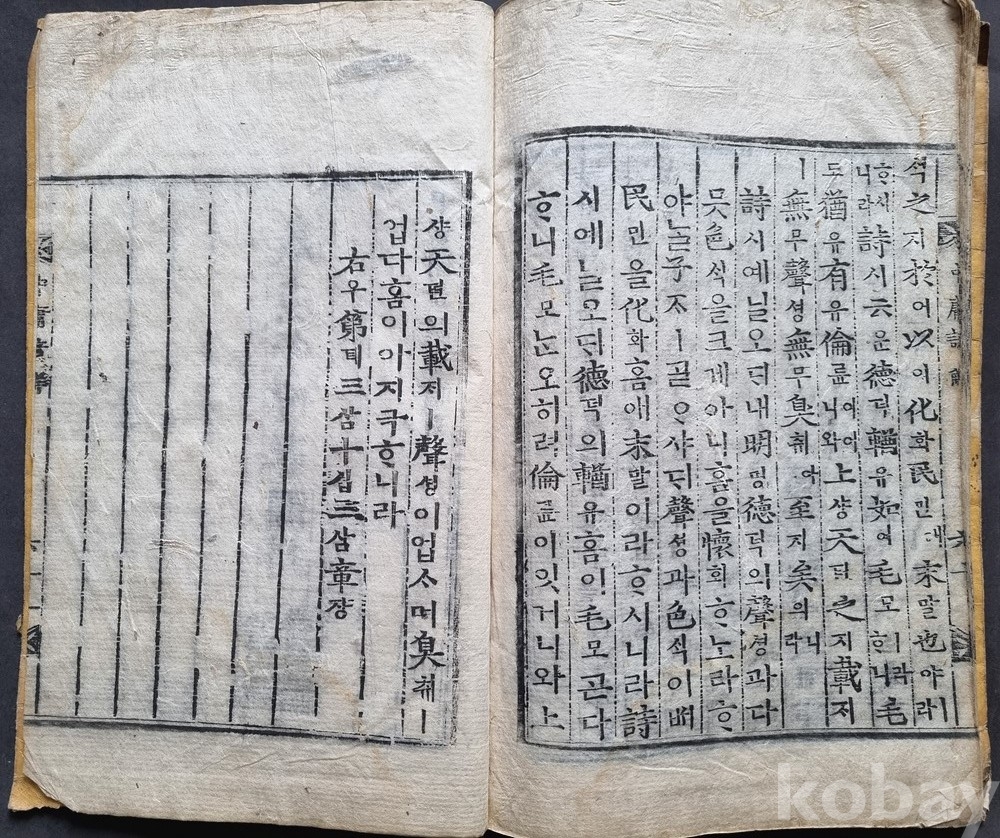 ᄉᆡᆨ之지於어以이化화民민애末말也야ㅣ라
ᄒᆞ시니라詩시云운德덕輶유如여毛모ㅣ라ᄒᆞ니毛
모猶유有유倫륜이어니와上샹天텬之지載ᄌᆡ
ㅣ無무聲셩無무臭취아至지矣의니라
詩시예닐오ᄃᆡ내明명德덕의聲셩과다
ᄆᆞᆺ色ᄉᆡᆨ을크게아니홈을懷회ᄒᆞ노라ᄒᆞ
야ᄂᆞᆯ子ᄌᆞㅣᄀᆞᆯᄋᆞ샤ᄃᆡ聲셩과色ᄉᆡᆨ이ᄡᅥ
民민을化화홈애末말이라ᄒᆞ시니라詩
시에닐오ᄃᆡ德덕의輶유홈이毛모ᄀᆞᆮ다
ᄒᆞ니毛모ᄂᆞᆫ오히려倫륜이잇거니와上
샹天텬의載ᄌᆡㅣ聲셩이업ᄉᆞ며臭취ㅣ
업다홈이아지극ᄒᆞ니라
右우第뎨三삼十십三삼章쟝
kobay